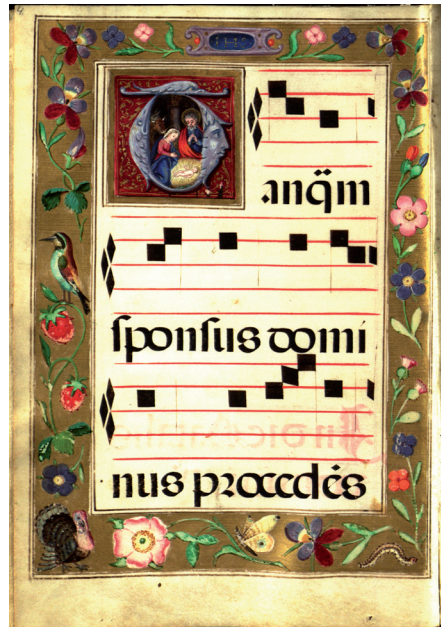 Tanq̈m
ſponſus domi
nus pꝛocedés